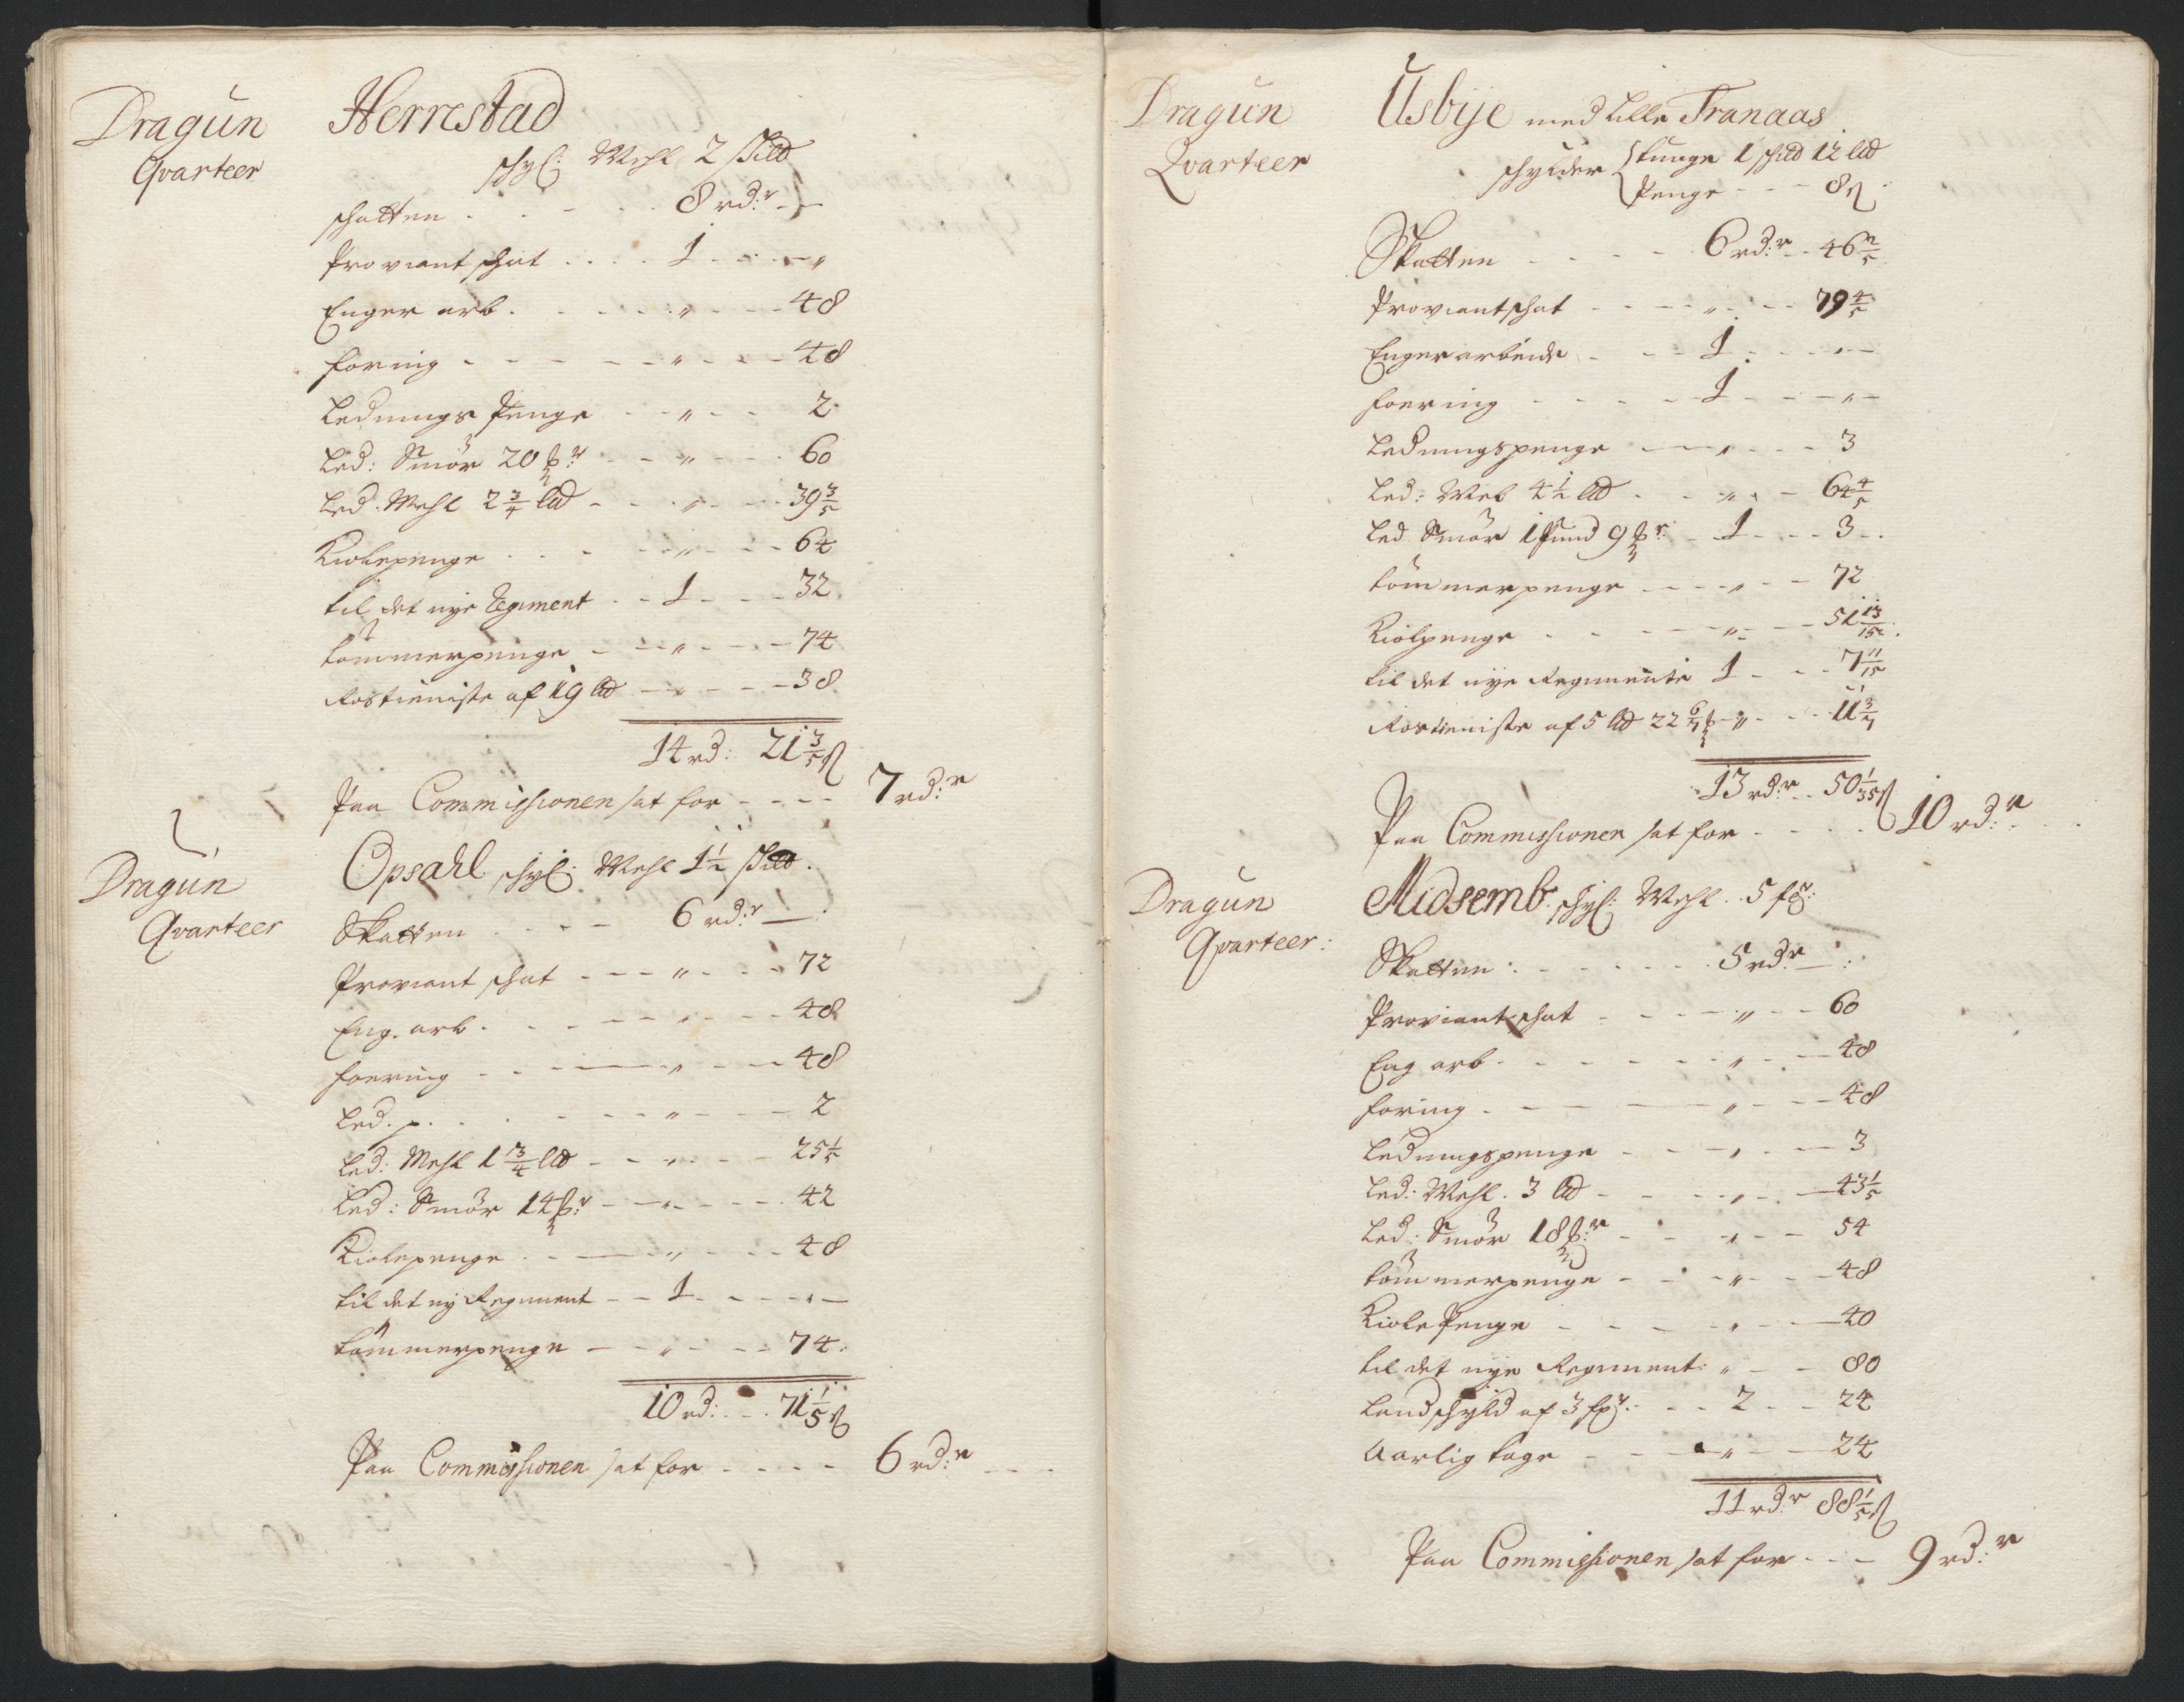 Dragun Qvarteer
Herrestad
schyl: Mehl 2 skild
schatten . . . . 8 rd:r - -
Proviant schat . . . . 1 - - - "
Enger arb. - - - " - - 48
foring - - - - - " - - - 48
Lednings Penge - - " - - 2
Led: Smör 20 ℔r - - " - - 60
Led. Mehl 2 3/4 lld - - " - - 39 3/5
Kiolepenge - - - " - - 64
til det nye Regiment - - 1 - - 32
tömmerpenge - - " - - 74
Rostieniste af 19 lld - " - - 38
14 rd: 21 3/5 ß
Paa Commissionen sat for - - - - 7 rd:r
Dragun Qvarteer
Opsahl schyl: Mehl 1 1/2 skild.
Skatten - - - 6 rd:r - :
Proviant schat - - - " - - - 72
Eng. arb. - - - " - - 48
foering - - - " - - 48
Led. p. . - - - " - - - 2
Led: Mehl 1 3/4 lld - - " - - 25 1/5
Led: Smör 14 ℔:r - - " - - - 42
Kiolepenge - - " - - - 48
til det ny Regiment - - 1 - - - " -
tömmerpenge - - " - - - 74.
10 rd: - - 71 1/5 ß
Paa Commissionen sat for - - - - 6 rd:r
Dragun Qvarteer
Usbÿe med Lille Tranaas
schylder tunge 1 skild 12 lld
Penge - - - 8 ß
Skatten - - - - 6 rd:r - 46 2/5
Proviantschat - - - " - - 79 4/5
Enger arbeide - - - 1 - - " -
foering - - - - 1 - - - " -
Ledningspenge - - " - - - 3
Led: Mel 4 1/2 lld . - " - - 64 4/5
Led Smör 1 Pund 9 ℔r: - 1 - - - 3 -
tömmerpenge - - - " - - 72
Kiolpenge - - - - " - - 51 13/15
til det nye Regimente 1 - - - 7 11/15
Rostieniste af 5 lld 22 6/7 ℔ - " - - 11 3/7
13 rd:r - 50 1/35 ß
Paa Commissionen sat for - - - - 10 rd:r
Dragun Qvarteer:
Midsemb. schyl: Mehl. 5 fr:
Skatten . - - - - 5 rd:r - :
Proviant schat - - - - " - - 60
Eng arb - - - - - " - - 48
foring - - - - " - - - 48
Ledningspenge - - - " - - 3
Led: Mehl. 3 lld - - - " - - 43 1/5
Led: Smör 18 ℔:r - - " - - 54
tömmerpenge - - - " - - - 48
Kiole Penge - - - - " - - 40
til det nye Regiment: " - - 80
Landschyld af 3 fr: - - 2 - - 24
Aarlig tage - - - " - - 24
11 rd:r 88 1/5 ß
Paa Commissionen sat for - - - 9 rd:r